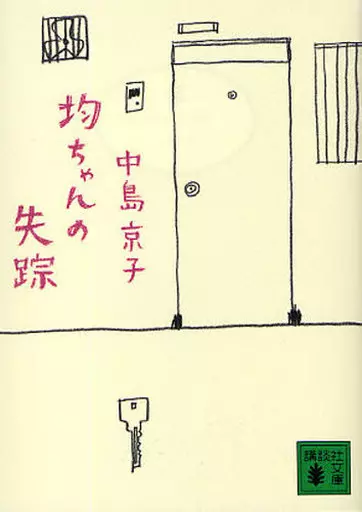 均ちゃんの
失踪
中島京子
講談社
文庫